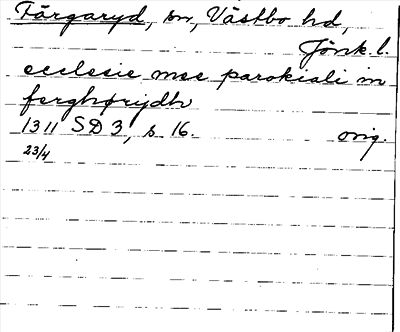 Färgaryd, sn, Västbo hd,
Jönk. l.
ecclesie mee parokiali in
ferghørydh
1311 SD 3, s. 16. orig.
23/4